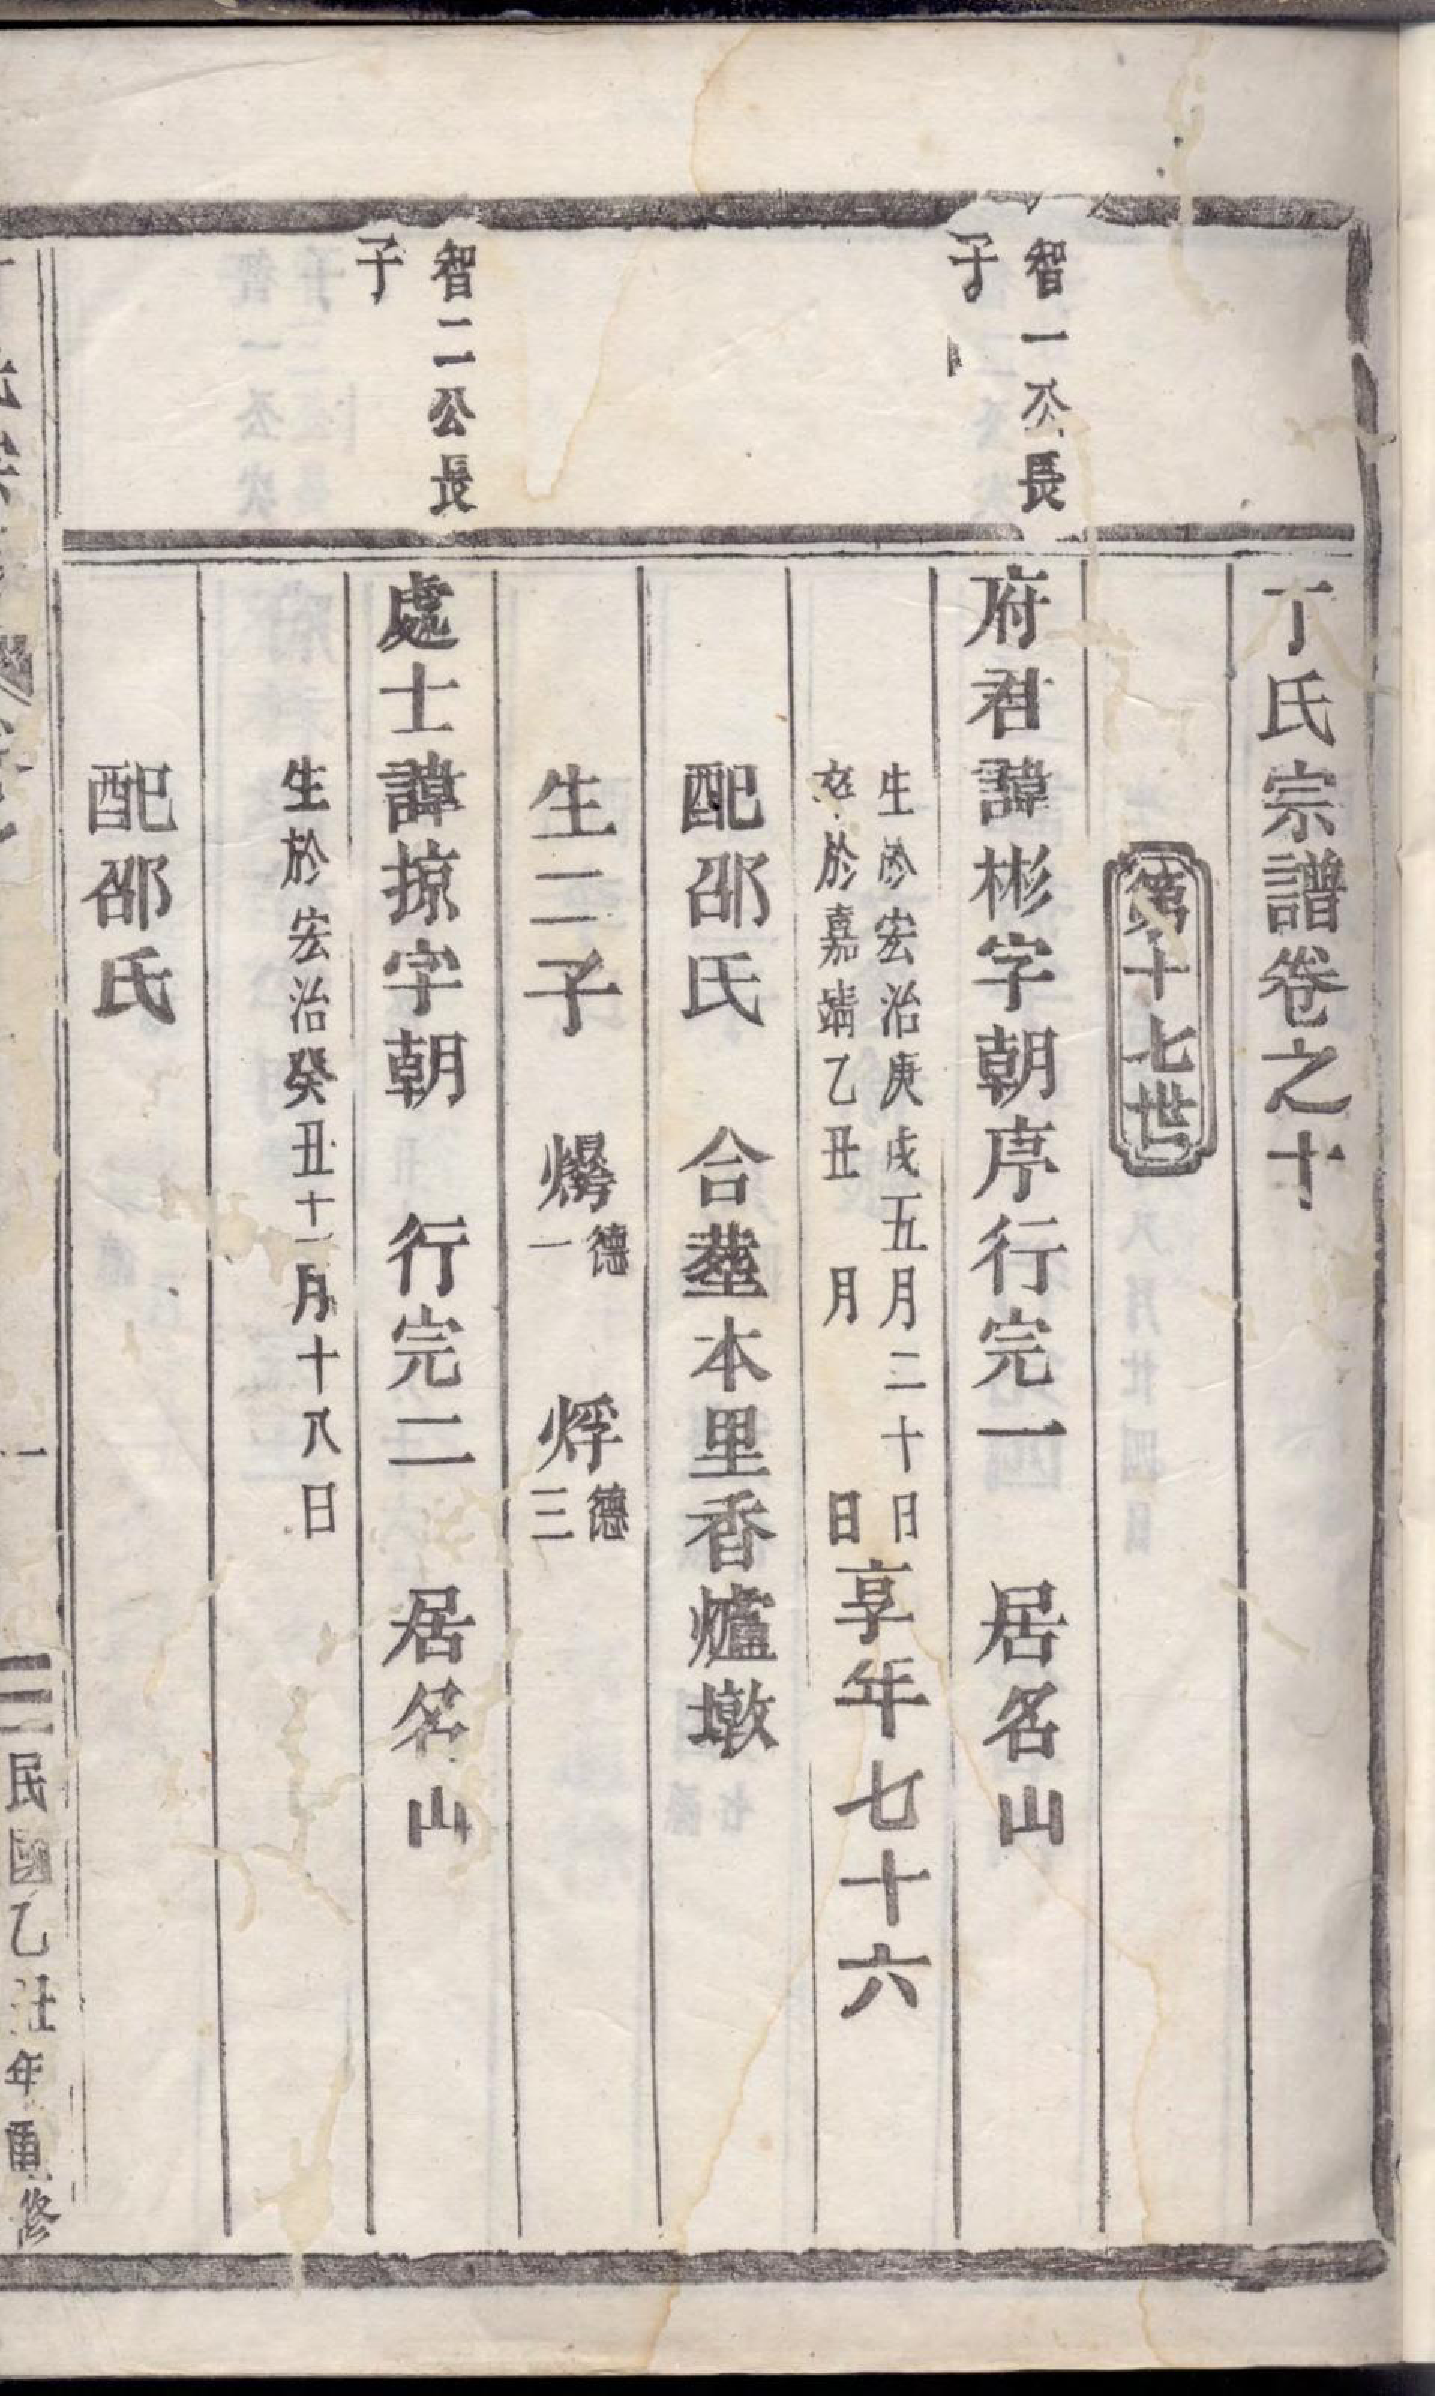 丁氏宗譜卷之十
第十七世
智一公長
子
府君諱彬字朝序行完一　居名山
生於宏治庚戌五月二十日
卒於嘉靖乙丑　月　　日享年七十六
配邵氏　合塟本里香爐墩
生二子　德一　烰德三
智二公長
子
處士諱掠字朝　行完二　居名山
生於宏治癸丑十一月十八日
配邵氏
一
民國乙丑年重修